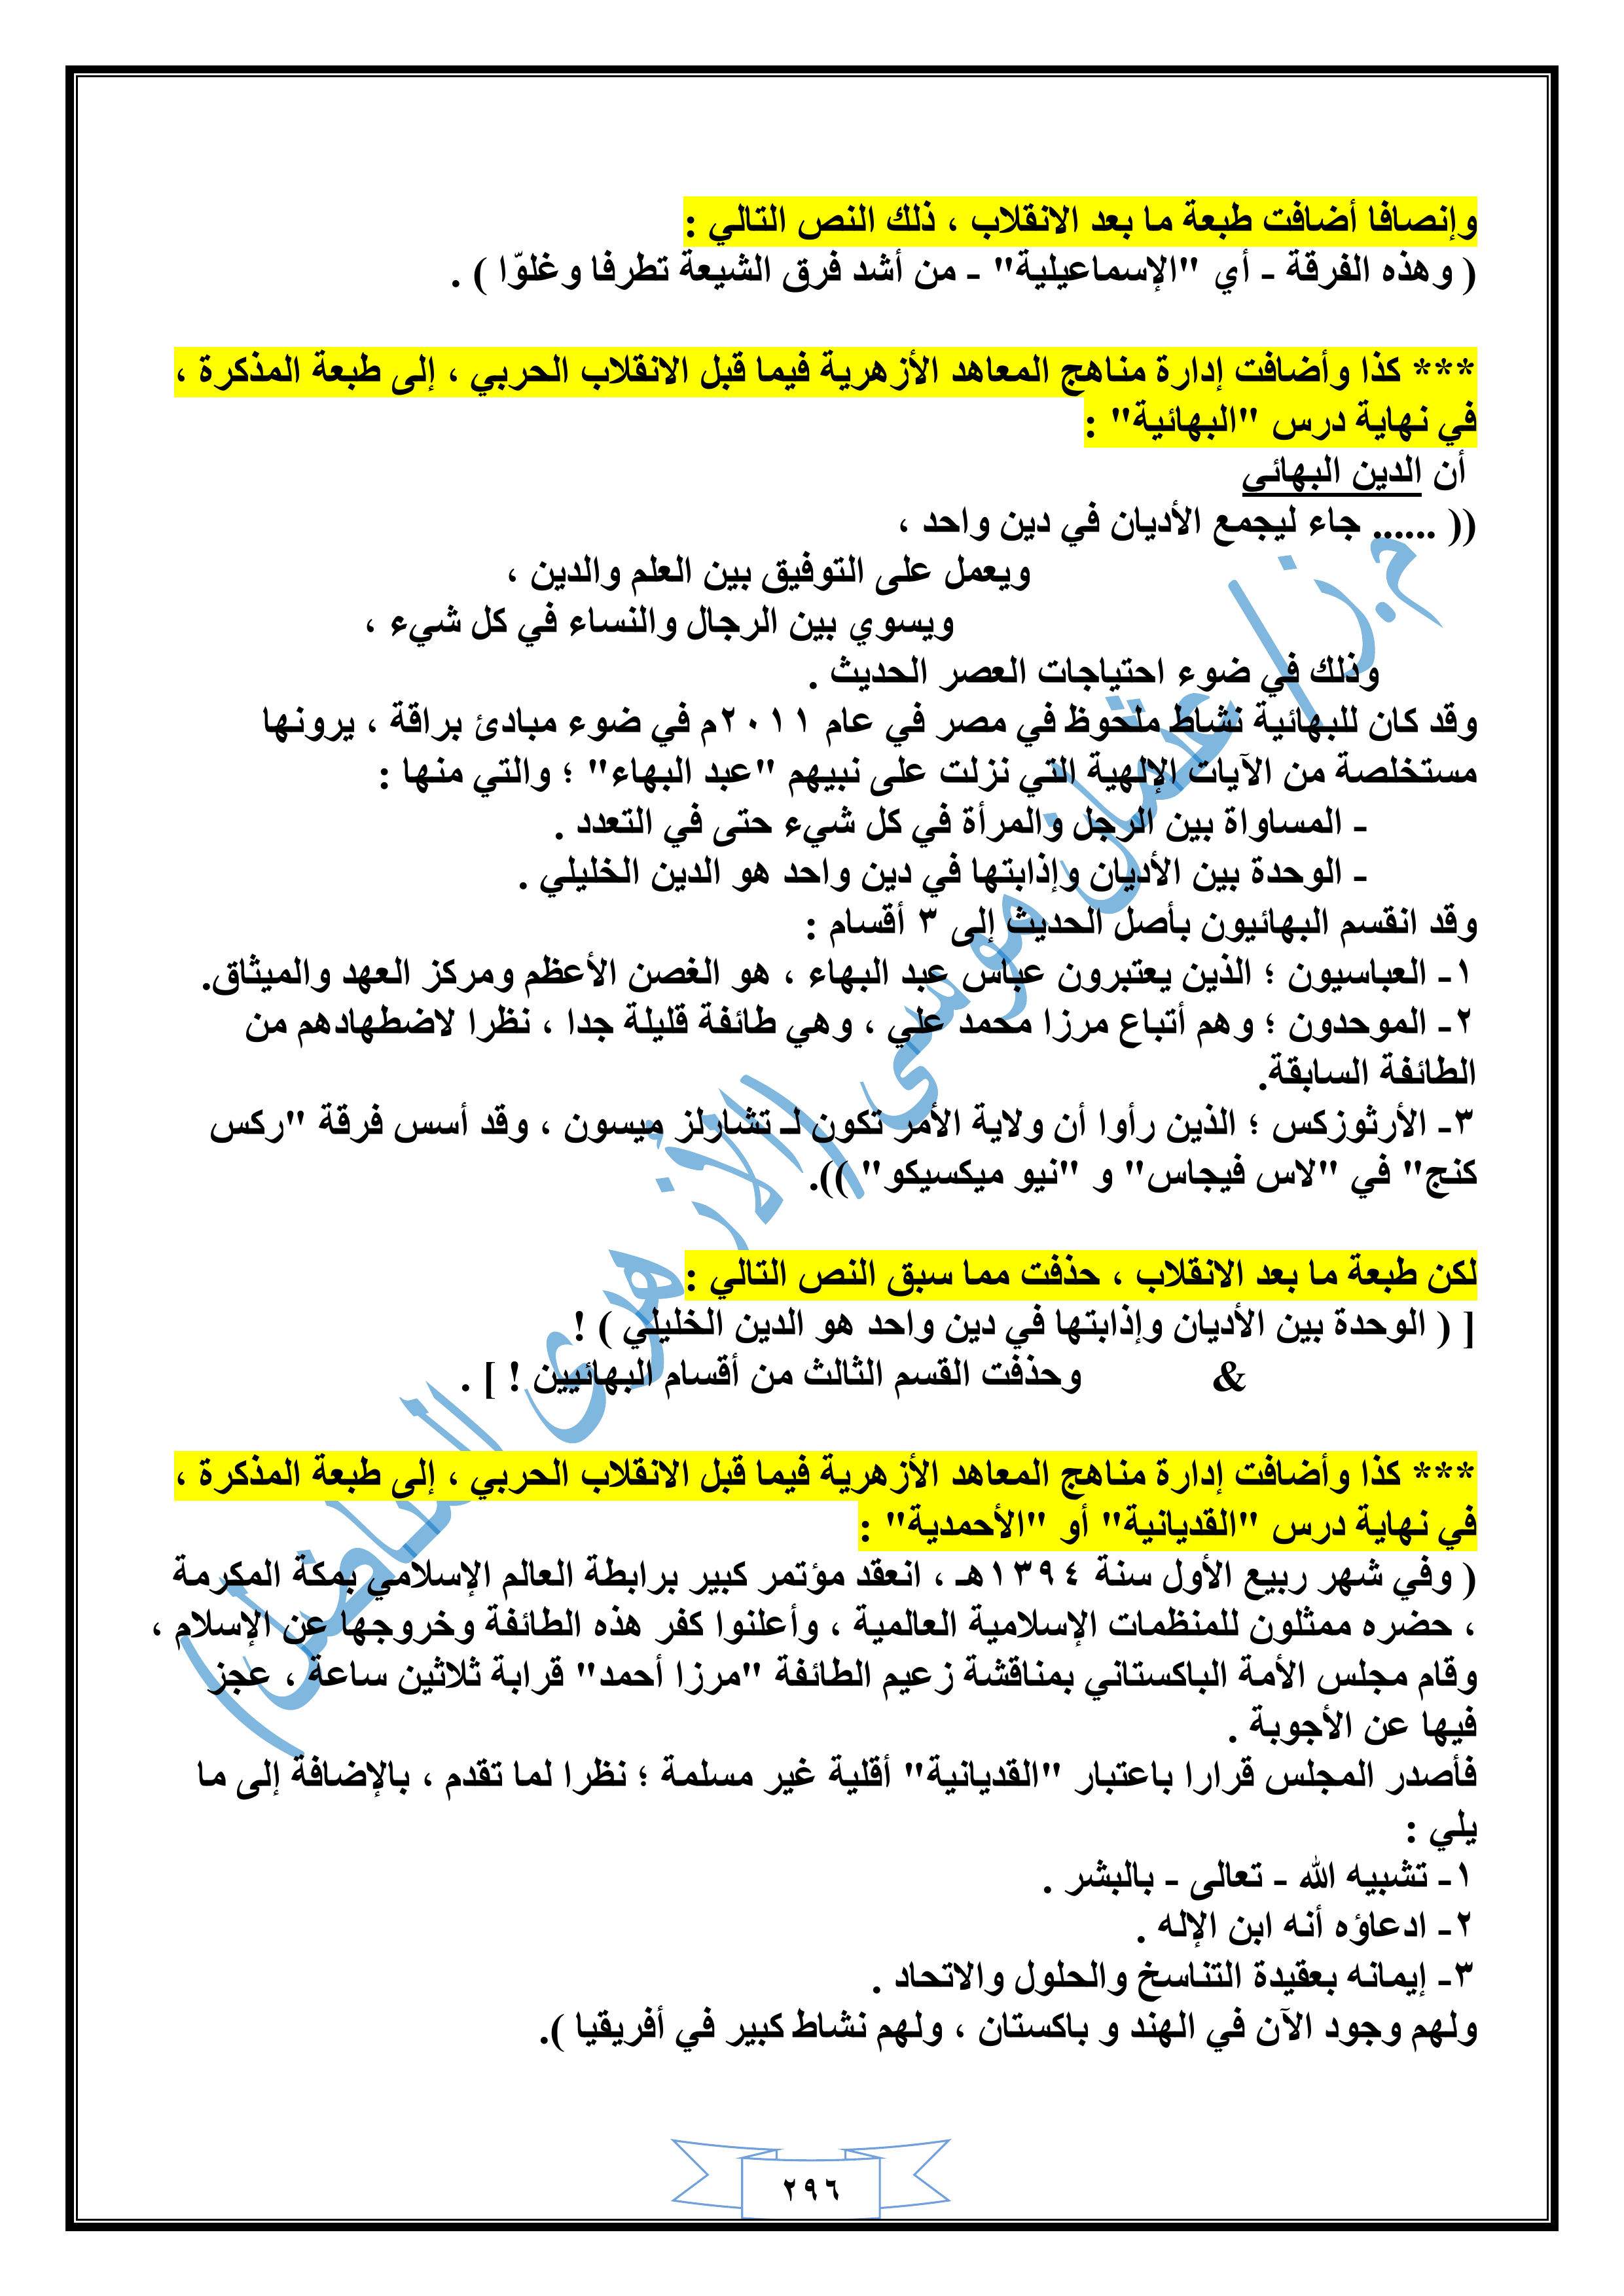 وإنصافا أضافت طبعة ما بعد الانقلاب ، ذلك النص التالي :
( وهذه الفرقة - أي "الإسماعيلية" - من أشد فرق الشيعة تطرفا وغلوّا ) .
*** كذا وأضافت إدارة مناهج المعاهد الأزهرية فيما قبل الانقلاب الحربي ، إلى طبعة المذكرة ،
في نهاية درس "البهائية" :
أن الدين البهائى
(( ...... جاء ليجمع الأديان في دين واحد ،
ويعمل على التوفيق بين العلم والدين ،
ويسوي بين الرجال والنساء في كل شيء ،
وذلك في ضوء احتياجات العصر الحديث .
وقد كان للبهائية نشاط ملحوظ في مصر في عام ٢٠١١م في ضوء مبادئ براقة ، يرونها
مستخلصة من الآيات الإلهية التي نزلت على نبيهم "عبد البهاء" ؛ والتي منها :
- المساواة بين الرجل والمرأة في كل شيء حتى في التعدد .
- الوحدة بين الأديان وإذابتها في دين واحد هو الدين الخليلي .
وقد انقسم البهائيون بأصل الحديث إلى ٣ أقسام :
١- العباسيون ؛ الذين يعتبرون عباس عبد البهاء ، هو الغصن الأعظم ومركز العهد والميثاق.
٢- الموحدون ؛ وهم أتباع مرزا محمد علي ، وهي طائفة قليلة جدا ، نظرا لاضطهادهم من
الطائفة السابقة.
٣- الأرثوزكس ؛ الذين رأوا أن ولاية الأمر تكون لـ تشارلز ميسون ، وقد أسس فرقة "ركس
كنج" في "لاس فيجاس" و "نيو ميكسيكو" )).
لكن طبعة ما بعد الانقلاب ، حذفت مما سبق النص التالي :
[ ( الوحدة بين الأديان وإذابتها في دين واحد هو الدين الخليلي ) !
& وحذفت القسم الثالث من أقسام البهائيين ! ] .
*** كذا وأضافت إدارة مناهج المعاهد الأزهرية فيما قبل الانقلاب الحربي ، إلى طبعة المذكرة ،
في نهاية درس "القديانية" أو "الأحمدية" :
( وفي شهر ربيع الأول سنة ١٣٩٤هـ ، انعقد مؤتمر كبير برابطة العالم الإسلامي بمكة المكرمة
، حضره ممثلون للمنظمات الإسلامية العالمية ، وأعلنوا كفر هذه الطائفة وخروجها عن الإسلام ،
وقام مجلس الأمة الباكستاني بمناقشة زعيم الطائفة "مرزا أحمد" قرابة ثلاثين ساعة ، عجز
فيها عن الأجوبة .
فأصدر المجلس قرارا باعتبار "القديانية" أقلية غير مسلمة ؛ نظرا لما تقدم ، بالإضافة إلى ما
يلي :
١- تشبيه الله - تعالى - بالبشر .
٢- ادعاؤه أنه ابن الإله .
٣- إيمانه بعقيدة التناسخ والحلول والاتحاد .
ولهم وجود الآن في الهند و باكستان ، ولهم نشاط كبير في أفريقيا ).
٢٩٦